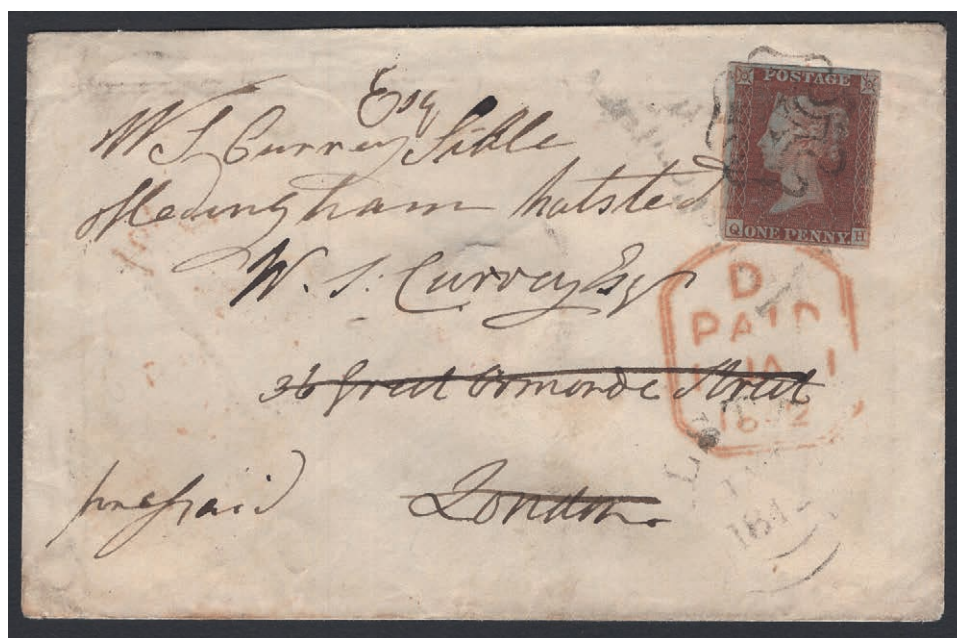 Esq
W S Currey Sible
Hedingham halsted
W. S. Currey Esq
36 Great Ormonde Street
prepaid
London.
POSTAGE
Q ONE PENNY H
D
PAID
JA 1
1842
184